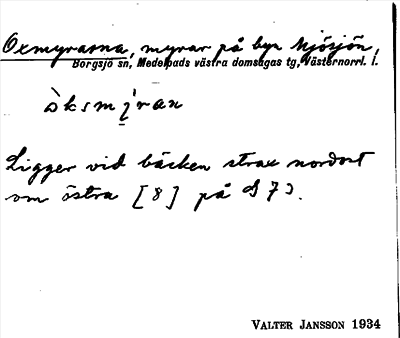 Oxmyrarna, myrar på byn Mjösjön,
Borgsjö sn, Medelpads västra domsagas tg, Västernorrl. l.
òksmỳ̯ran
Ligger vid bäcken strax nordost
om östra [8] på S 7J.
VALTER JANSSON 1934